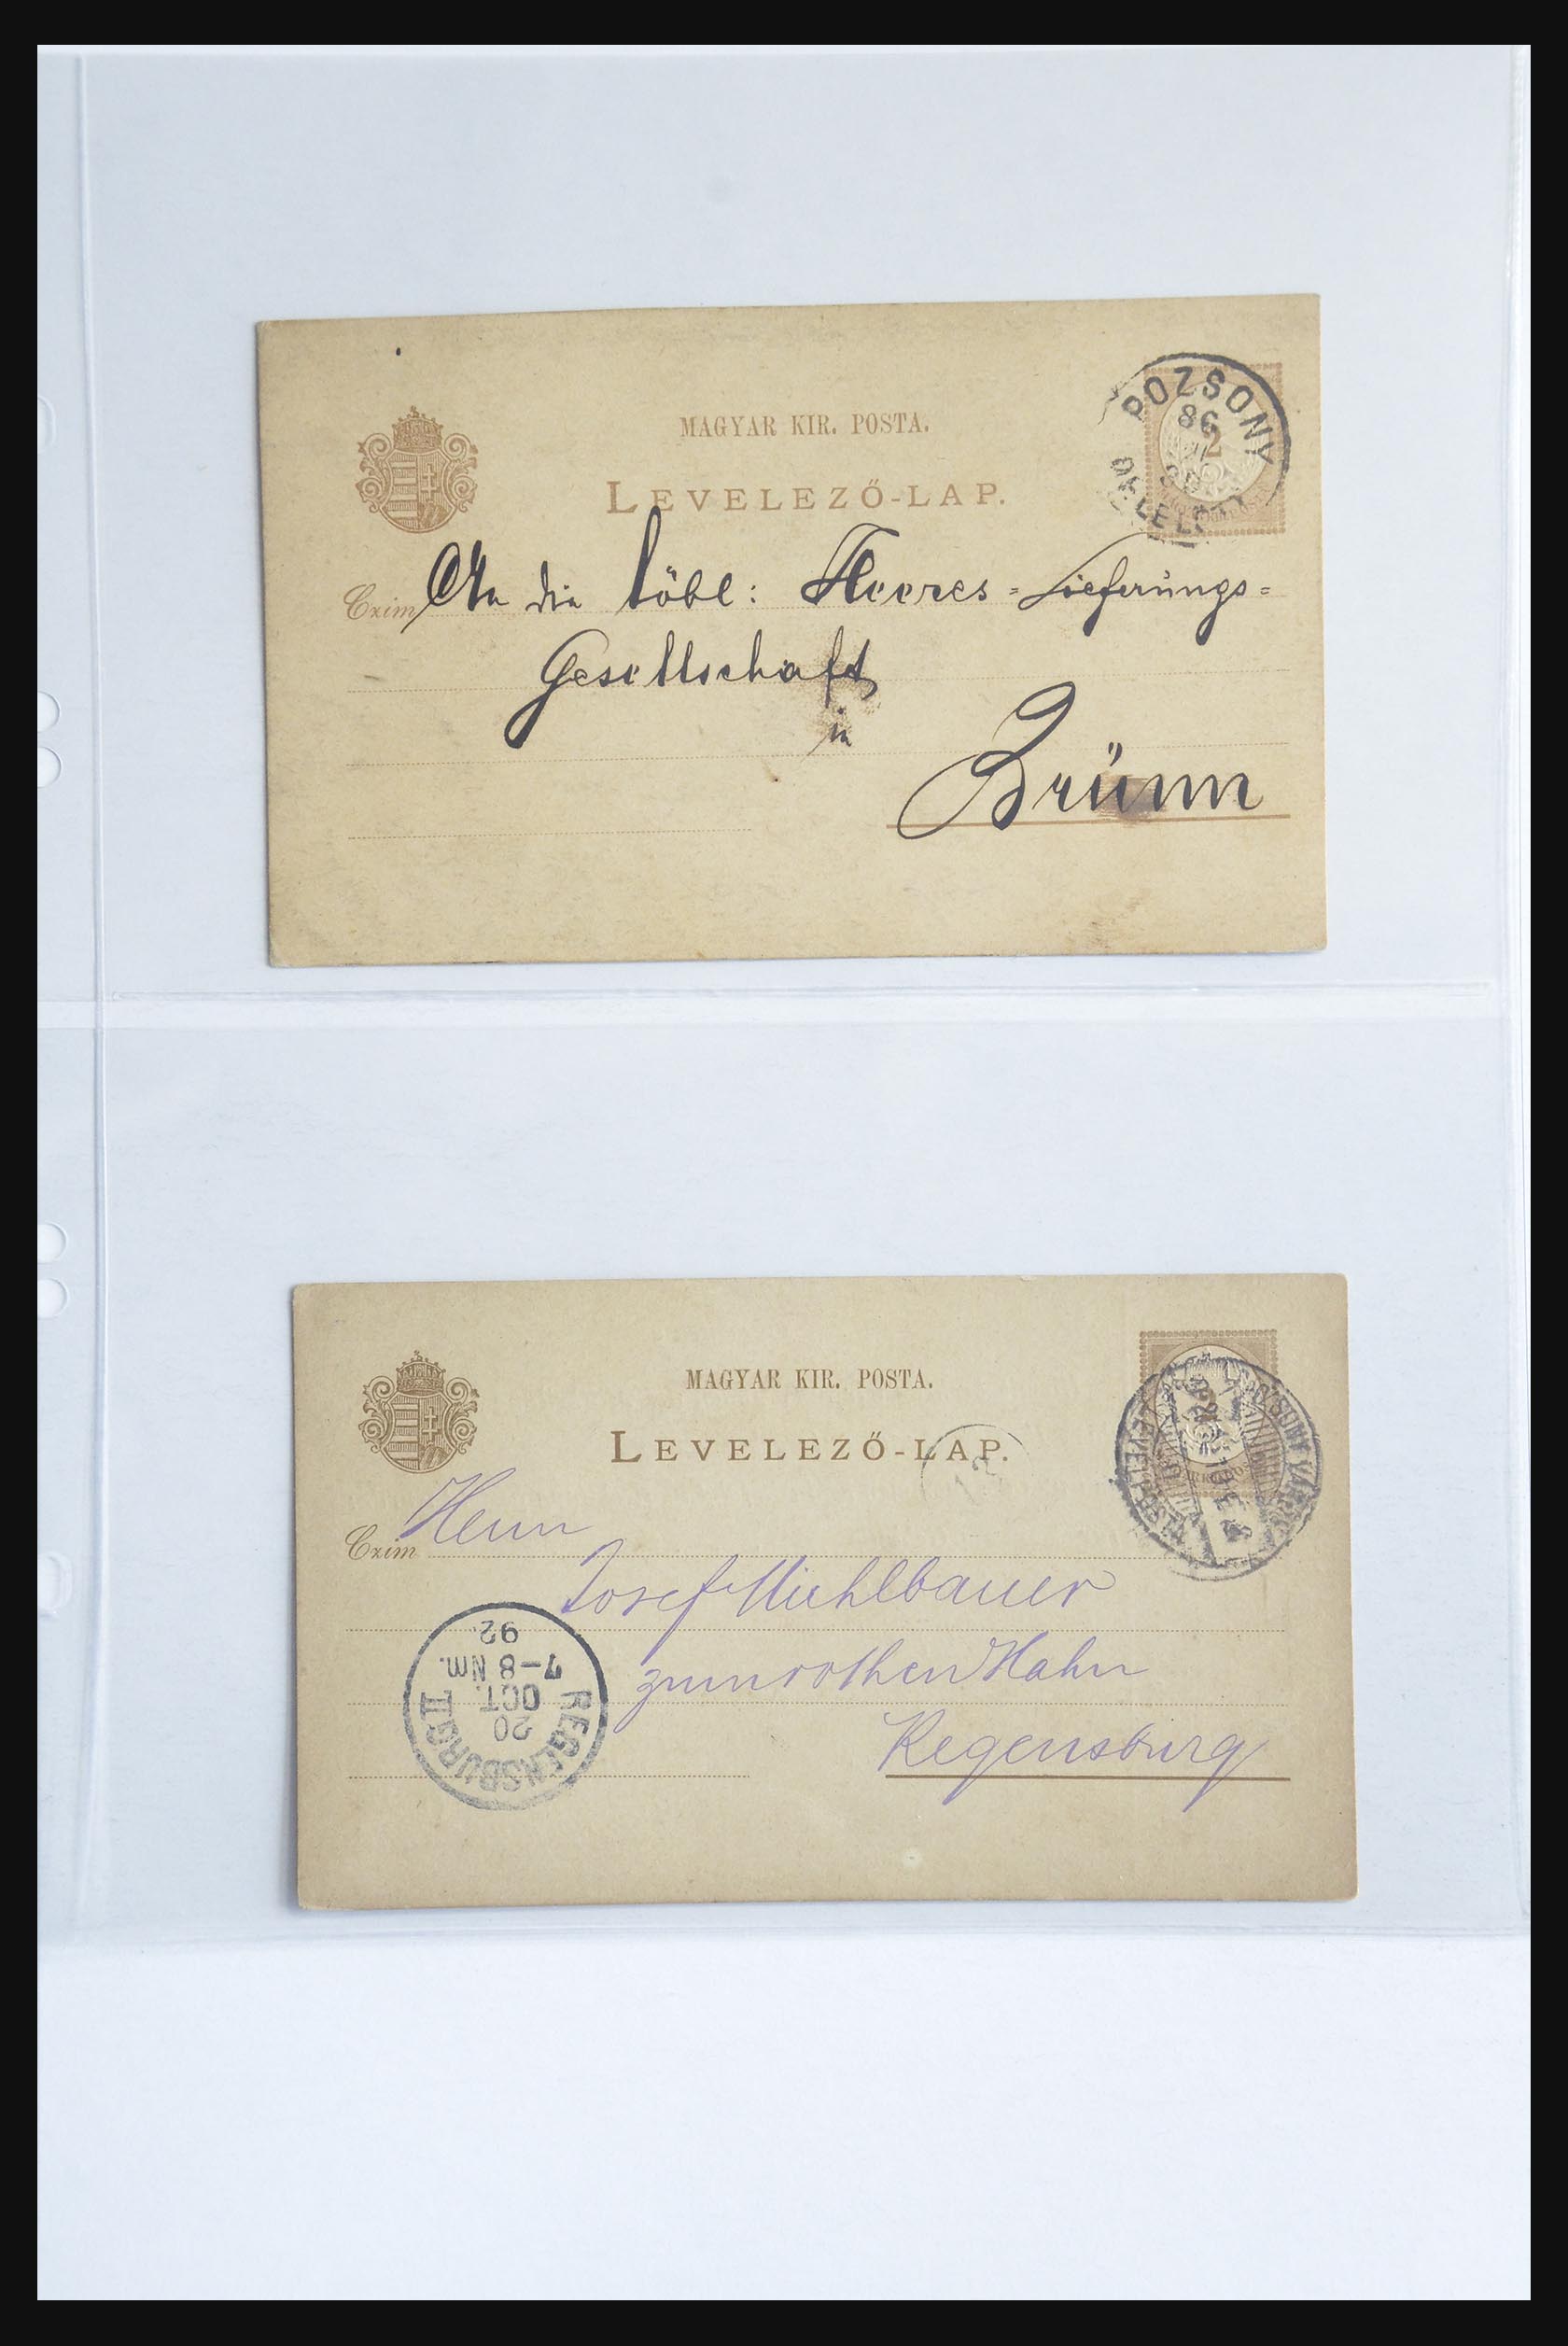 MAGYAR KIR. POSTA.
LEVELEZŐ-LAP.
POZSONY
86
2
Czim An die löbl: Heeres=Lieferungs=
Gesellschaft
in
Brünn
MAGYAR KIR. POSTA.
LEVELEZŐ-LAP.
Czim Herrn
Josef Mühlbauer
zum rothen Hahn
Regensburg
REGENSBURG II
20
OCT.
7–8 Nm.
92.